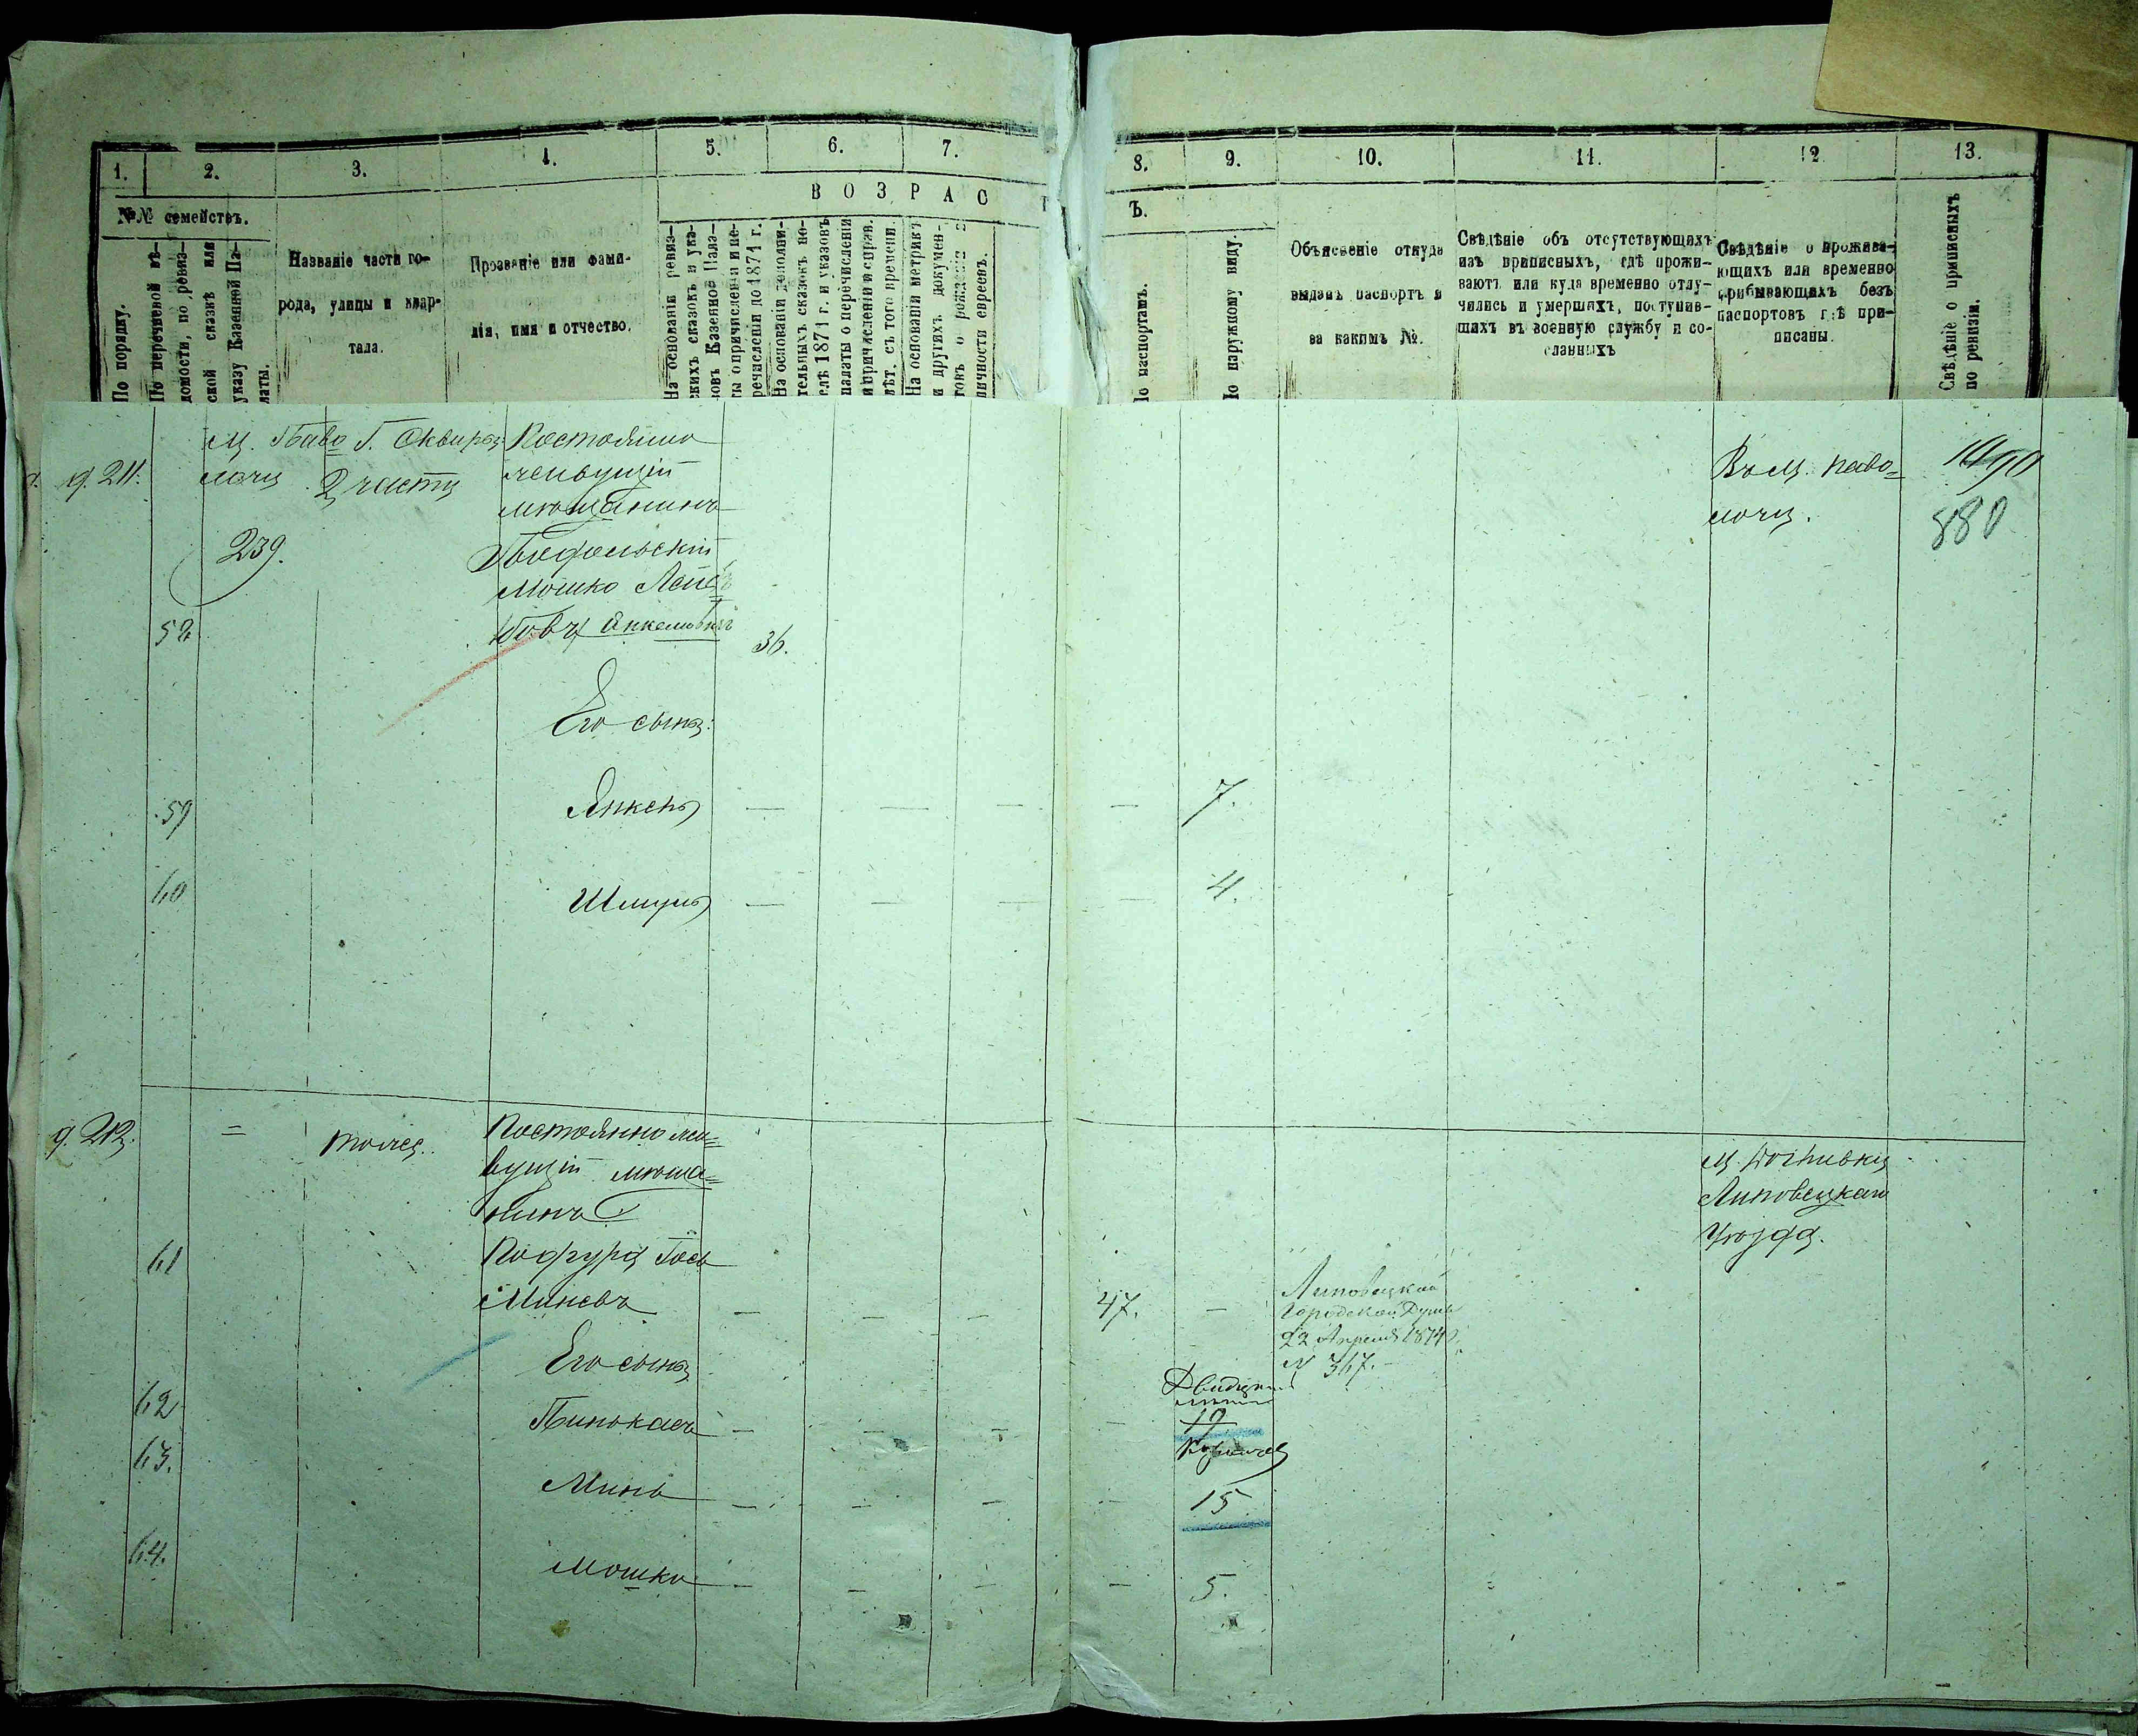 1.
2.
3.
4.
5.
6.
7.
8.
9.
10.
11.
12
13.
ВОЗРАС
Ъ.
№№ семействъ.
По порядку.
По перечневой вѣ-
домости, по ревиз-
ской сказкѣ или
указу Казенной Па-
латы.
Названіе части го-
рода, улицы и квар-
тала.
Прозваніе или фами-
лія, имя и отчество.
На основаніи ревиз-
скихъ сказокъ и ука-
зовъ Казенной Пала-
ты о причисленіи и пе-
речисленіи до 1871 г.
На основаніи дополни-
тельныхъ сказокъ по-
слѣ 1871 г. и указовъ
палаты о перечисленіи
и причисленіи и справ.
лѣт. съ того времени.
На основаніи метрикъ
и другихъ докумен-
товъ о рожденіи и
личности евреевъ.
По паспортамъ.
По наружному виду.
Объясненіе откуда
выданъ паспортъ и
за какимъ №.
Свѣдѣніе объ отсутствующихъ
изъ приписныхъ, гдѣ прожи-
ваютъ или куда временно отлу-
чились и умершихъ, поступив-
шихъ въ военную службу и со-
сланныхъ
Свѣдѣніе о прожива-
ющихъ или временно
прибывающихъ безъ
паспортовъ гдѣ при-
писаны.
Свѣдѣніе о приписныхъ
по ревизіи.
д. 211.
м. Паво=
лочи
239.
Г. Сквира
2 части
Постоянно
живущій
мѣщанинъ
Подольскій
Мошко Лей=
бовъ Янкелевичъ
58
36.
Въ м. Паво=
лочи.
880
Его сыны:
59
Янкель
7.
60
Шмуль
4.
д. 212.
=
тоже.
Постоянно жи=
вущій мѣща=
нинъ
61
Пось
Миневъ
47.
Липовецкой
Городской Думы
22 Апреля 1874 г.
№ 367.
Липовецкаго
Уѣзда.
Его сыны
62
Пинькасъ
19
63.
Минь
15
64.
Мошко
5.